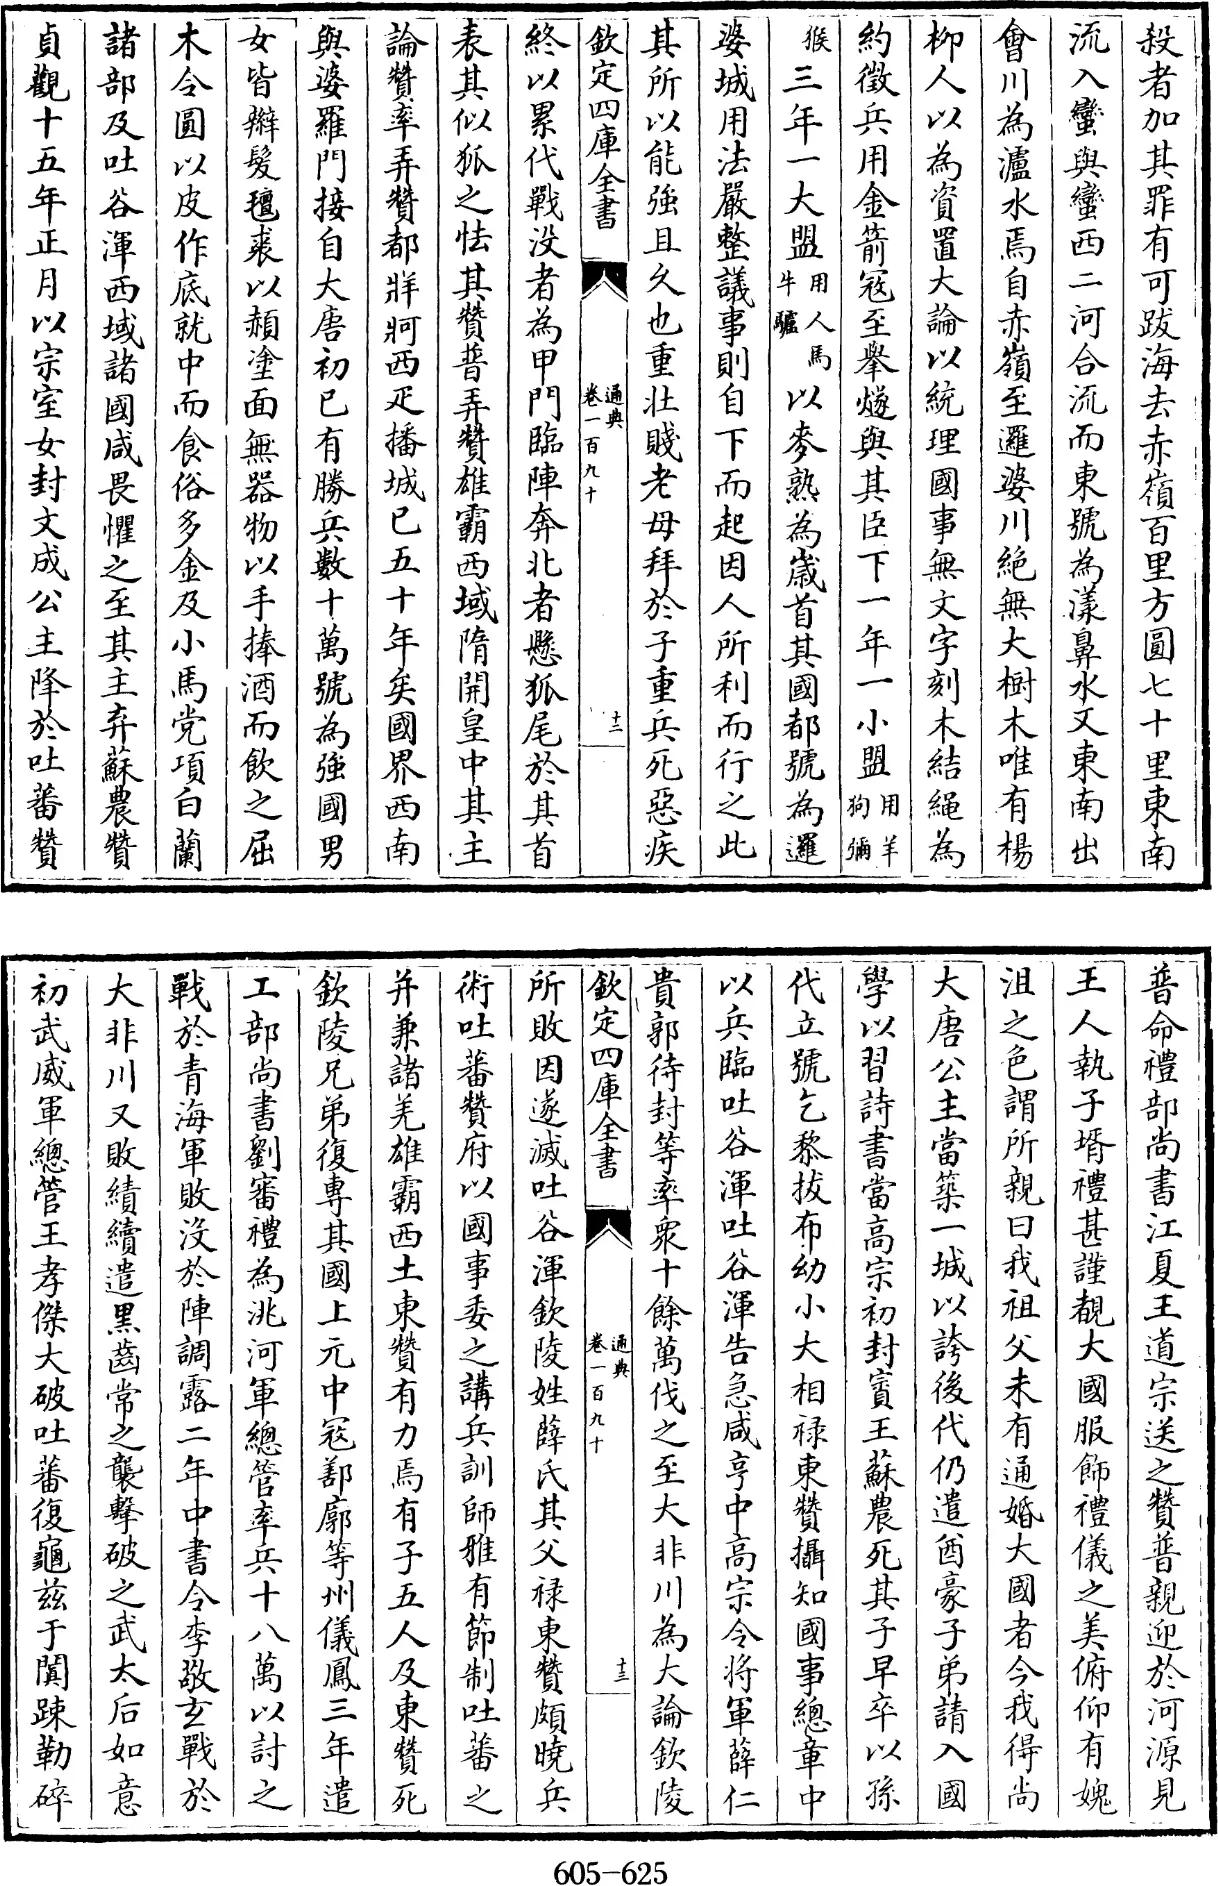 殺者加其罪有可跋海去赤嶺百里方圓七十里東南
流入蠻與蠻西二河合流而東號為漾鼻水又東南出
會川為瀘水焉自赤嶺至邏娑川絶無大樹木唯有楊
柳人以為資置大論以統理國事無文字刻木結繩為
約徵兵用金箭寇至舉燧與其臣下一年一小盟用羊狗獼
猴三年一大盟用人馬牛驢以麥熟為嵗首其國都號為邏
娑城用法嚴整議事則自下而起因人所利而行之此
其所以能強且久也重壯賤老母拜於子重兵死惡疾
欽定四庫全書
通典
卷一百九十
十二
終以累代戰没者為甲門臨陣奔北者懸狐尾於其首
表其似狐之怯其贊普弄贊雄霸西域隋開皇中其主
論贊率弄贊都牂牁西疋播城已五十年矣國界西南
與婆羅門接自大唐初已有勝兵數十萬號為強國男
女皆辮髮氊裘以赬塗面無器物以手捧酒而飲之屈
木令圓以皮作底就中而食俗多金及小馬党項白蘭
諸部及吐谷渾西域諸國咸畏懼之至其主弃蘇農贊
貞觀十五年正月以宗室女封文成公主降於吐蕃贊
普命禮部尚書江夏王道宗送之贊普親迎於河源見
王人執子壻禮甚謹覩大國服飾禮儀之美俯仰有媿
沮之色謂所親曰我祖父未有通婚大國者今我得尚
大唐公主當築一城以誇後代仍遣酋豪子弟請入國
學以習詩書當高宗初封賓王蘇農死其子早卒以孫
代立號乞黎拔布幼小大相禄東贊攝知國事總章中
以兵臨吐谷渾吐谷渾告急咸亨中高宗令將軍薛仁
貴郭待封等率衆十餘萬伐之至大非川為大論欽陵
欽定四庫全書
通典
卷一百九十
十三
所敗因遂滅吐谷渾欽陵姓薛氏其父禄東贊頗曉兵
術吐蕃贊府以國事委之講兵訓師雅有節制吐蕃之
并兼諸羌雄霸西土東贊有力焉有子五人及東贊死
欽陵兄弟復專其國上元中寇鄯廓等州儀鳳三年遣
工部尚書劉審禮為洮河軍總管率兵十八萬以討之
戰於青海軍敗没於陣調露二年中書令李敬玄戰於
大非川又敗績續遣黒齒常之襲擊破之武太后如意
初武威軍總管王孝傑大破吐蕃復龜兹于闐踈勒碎
605-625